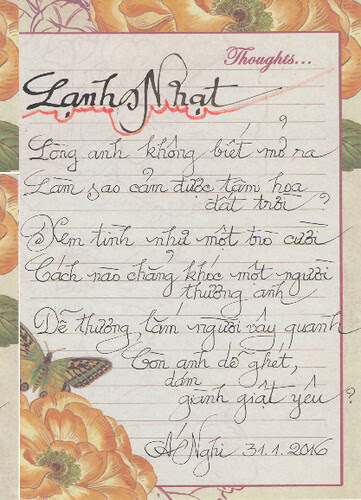 Thoughts...
Lạnh Nhạt
Lòng anh không biết mở ra
Làm sao cảm được tâm hoa
đất trời?
Xem tình như một trò cười
Cách nào chẳng khóc một người
thương anh
Dễ thương, lắm người vây quanh
Còn anh dễ ghét,
dám
giành giật yêu?
Á Nghi 31.1.2016